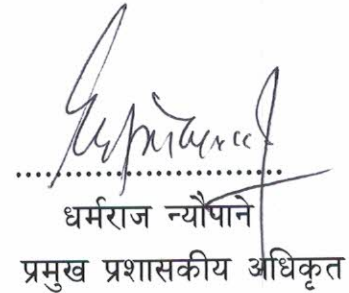 ....................................
धर्मराज न्यौपाने
प्रमुख प्रशासकीय अधिकृत